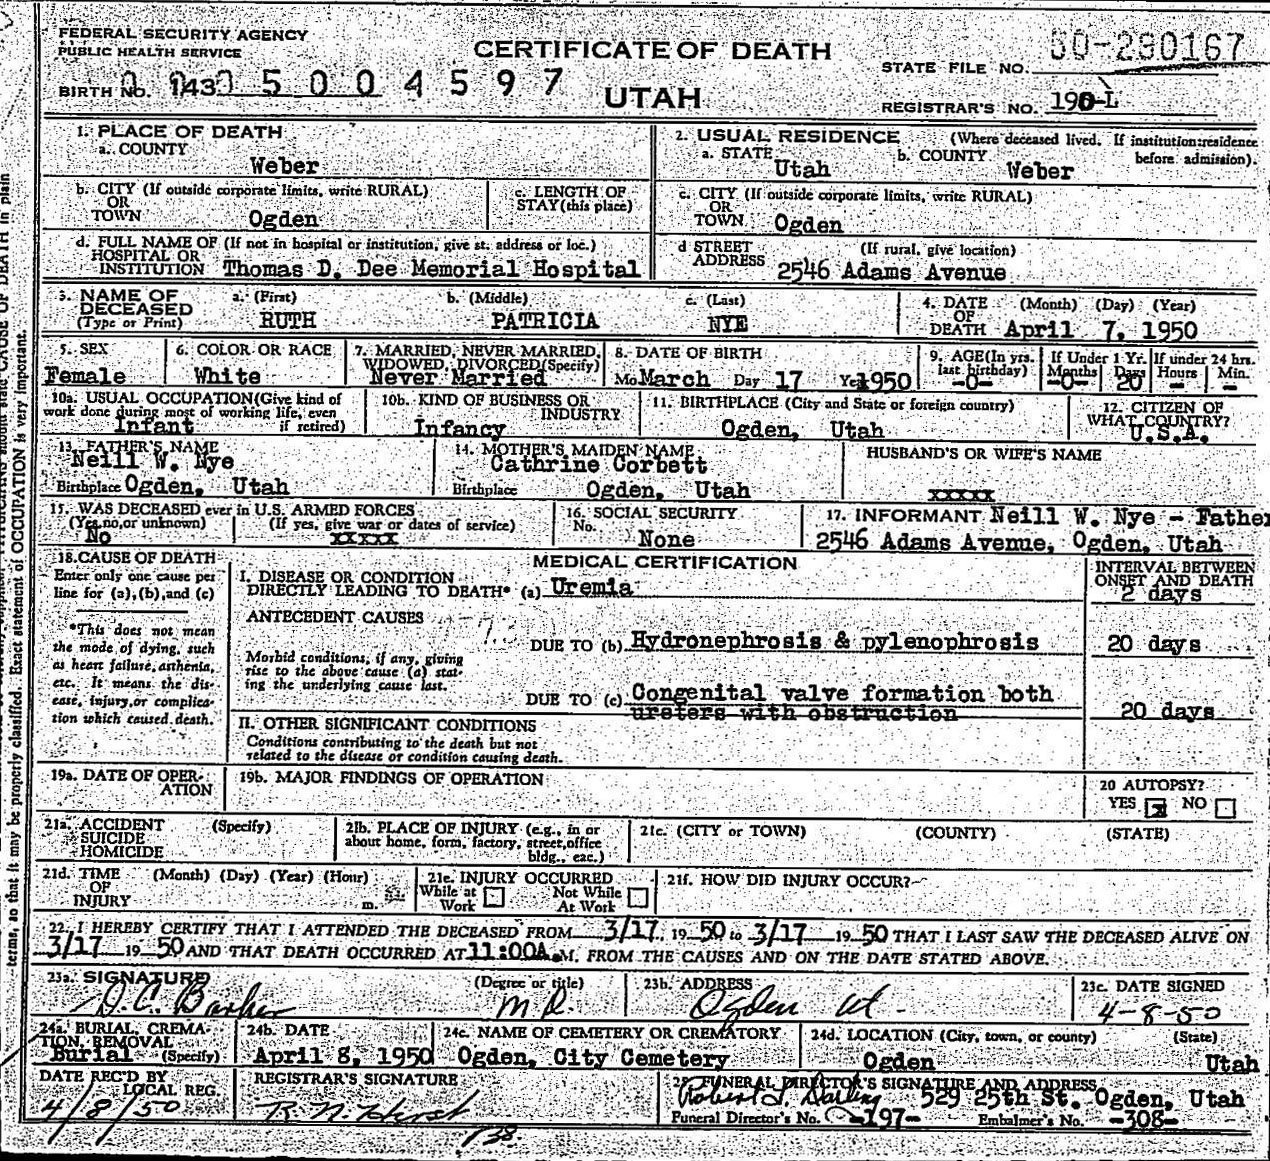 FEDERAL SECURITY AGENCY
PUBLIC HEALTH SERVICE
CERTIFICATE OF DEATH
UTAH
STATE FILE NO. 50-290167
BIRTH NO. 143 5 0 0 4 5 9 7
REGISTRAR'S NO. 190-L
1. PLACE OF DEATH
a. COUNTY
Weber
2. USUAL RESIDENCE (Where deceased lived. If institution:residence before admission).
a. STATE Utah b. COUNTY Weber
b. CITY (If outside corporate limits, write RURAL)
OR
TOWN Ogden
c. LENGTH OF
STAY(this place)
c. CITY (If outside corporate limits, write RURAL)
OR
TOWN Ogden
d. FULL NAME OF (If not in hospital or institution, give st. address or loc.)
HOSPITAL OR
INSTITUTION Thomas D. Dee Memorial Hospital
d STREET (If rural, give location)
ADDRESS 2546 Adams Avenue
3. NAME OF DECEASED
(Type or Print)
a. (First) b. (Middle) c. (Last)
RUTH PATRICIA NYE
4. DATE (Month) (Day) (Year)
OF
DEATH April 7, 1950
5. SEX
Female
6. COLOR OR RACE
White
7. MARRIED, NEVER MARRIED,
WIDOWED, DIVORCED(Specify)
Never Married
8. DATE OF BIRTH
Mo March Day 17 Year 1950
9. AGE(In yrs. last birthday)
-0-
If Under 1 Yr.
Months Days
-0- 20
If under 24 hrs.
Hours Min.
- -
10a. USUAL OCCUPATION(Give kind of
work done during most of working life, even
if retired)
Infant
10b. KIND OF BUSINESS OR
INDUSTRY
Infancy
11. BIRTHPLACE (City and State or foreign country)
Ogden, Utah
12. CITIZEN OF
WHAT COUNTRY?
U.S.A.
13. FATHER'S NAME
Neill W. Nye
Birthplace Ogden, Utah
14. MOTHER'S MAIDEN NAME
Cathrine Corbett
Birthplace Ogden, Utah
HUSBAND'S OR WIFE'S NAME
xxxxx
15. WAS DECEASED ever in U.S. ARMED FORCES
(Yes,no,or unknown) (If yes, give war or dates of service)
No xxxxx
16. SOCIAL SECURITY
No. None
17. INFORMANT Neill W. Nye - Father
2546 Adams Avenue, Ogden, Utah
18.CAUSE OF DEATH
Enter only one cause per
line for (a),(b),and (c)
*This does not mean
the mode of dying, such
as heart failure, asthenia,
etc. It means the dis-
ease, injury,or complica-
tion which caused death.
MEDICAL CERTIFICATION
INTERVAL BETWEEN
ONSET AND DEATH
I. DISEASE OR CONDITION
DIRECTLY LEADING TO DEATH* (a) Uremia
2 days
ANTECEDENT CAUSES
DUE TO (b) Hydronephrosis & pylenophrosis
20 days
Morbid conditions, if any, giving
rise to the above cause (a) stat-
ing the underlying cause last.
DUE TO (c) Congenital valve formation both
ureters with obstruction
20 days
II. OTHER SIGNIFICANT CONDITIONS
Conditions contributing to the death but not
related to the disease or condition causing death.
19a. DATE OF OPER-
ATION
19b. MAJOR FINDINGS OF OPERATION
20 AUTOPSY?
YES x NO
21a. ACCIDENT (Specify)
SUICIDE
HOMICIDE
21b. PLACE OF INJURY (e.g., in or
about home, form, factory, street,office
bldg., eac.)
21c. (CITY or TOWN) (COUNTY) (STATE)
21d. TIME (Month) (Day) (Year) (Hour)
OF
INJURY m.
21e. INJURY OCCURRED
While at Work Not While At Work
21f. HOW DID INJURY OCCUR?
22. I HEREBY CERTIFY THAT I ATTENDED THE DECEASED FROM 3/17, 19 50 to 3/17 19 50 THAT I LAST SAW THE DECEASED ALIVE ON
3/17 19 50 AND THAT DEATH OCCURRED AT 11:00A.M. FROM THE CAUSES AND ON THE DATE STATED ABOVE.
23a. SIGNATURE (Degree or title)
D.C. Barker M.D.
23b. ADDRESS
Ogden Ut.
23c. DATE SIGNED
4-8-50
24a. BURIAL, CREMA-
TION, REMOVAL
Burial (Specify)
24b. DATE
April 8, 1950
24c. NAME OF CEMETERY OR CREMATORY
Ogden, City Cemetery
24d. LOCATION (City, town, or county) (State)
Ogden Utah
DATE REC'D BY
LOCAL REG.
4/8/50
REGISTRAR'S SIGNATURE
25. FUNERAL DIRECTOR'S SIGNATURE AND ADDRESS
Robert J. Darling 529 25th St. Ogden, Utah
Funeral Director's No. -197- Embalmer's No. -308-
138
terms, so that it may be properly classified. Exact statement of OCCUPATION is very important.
CAUSE OF DEATH in plain